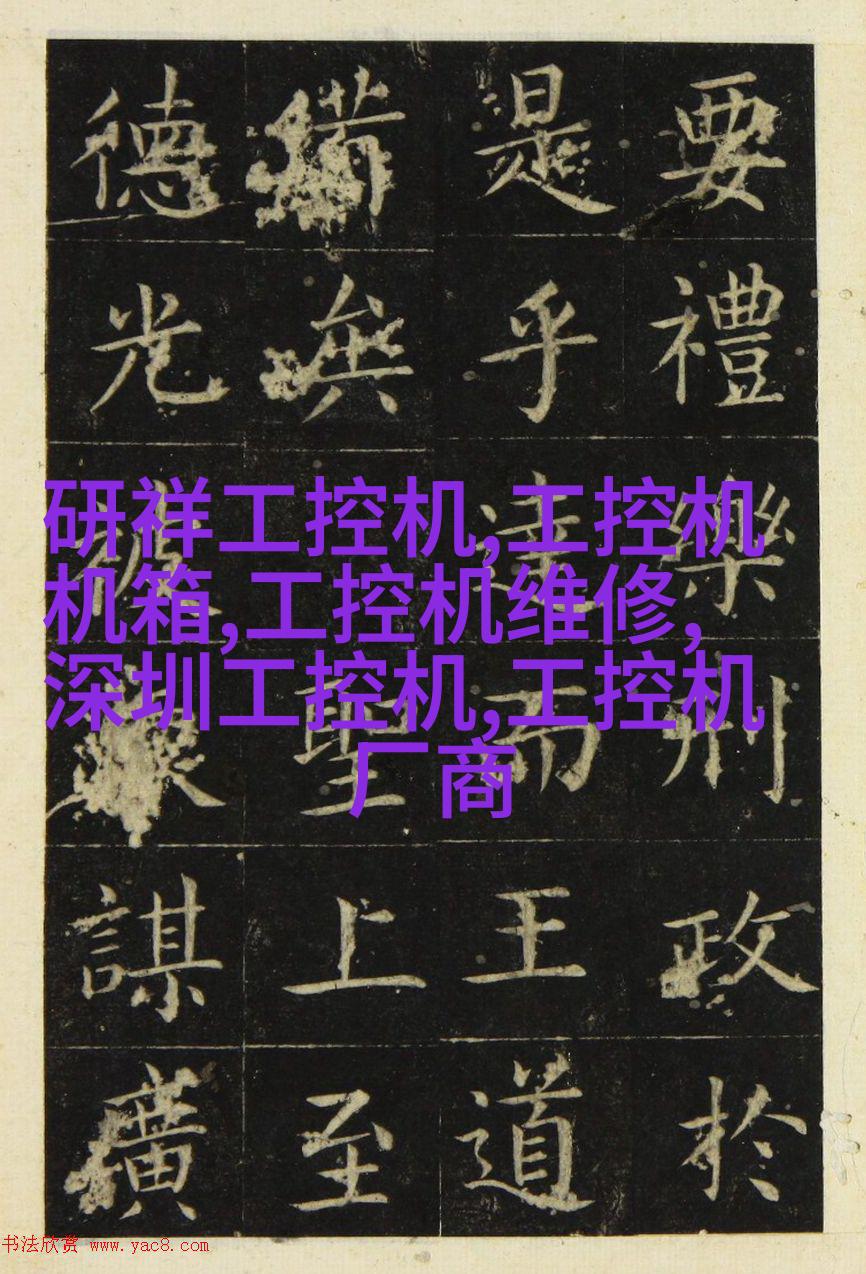 要禮樂刑政於
是乎達而王道
備矣聖上至
德光被謀廣
研祥工控机,工控机
机箱,工控机维修,
深圳工控机,工控机
厂商
书法欣赏 www.yac8.com